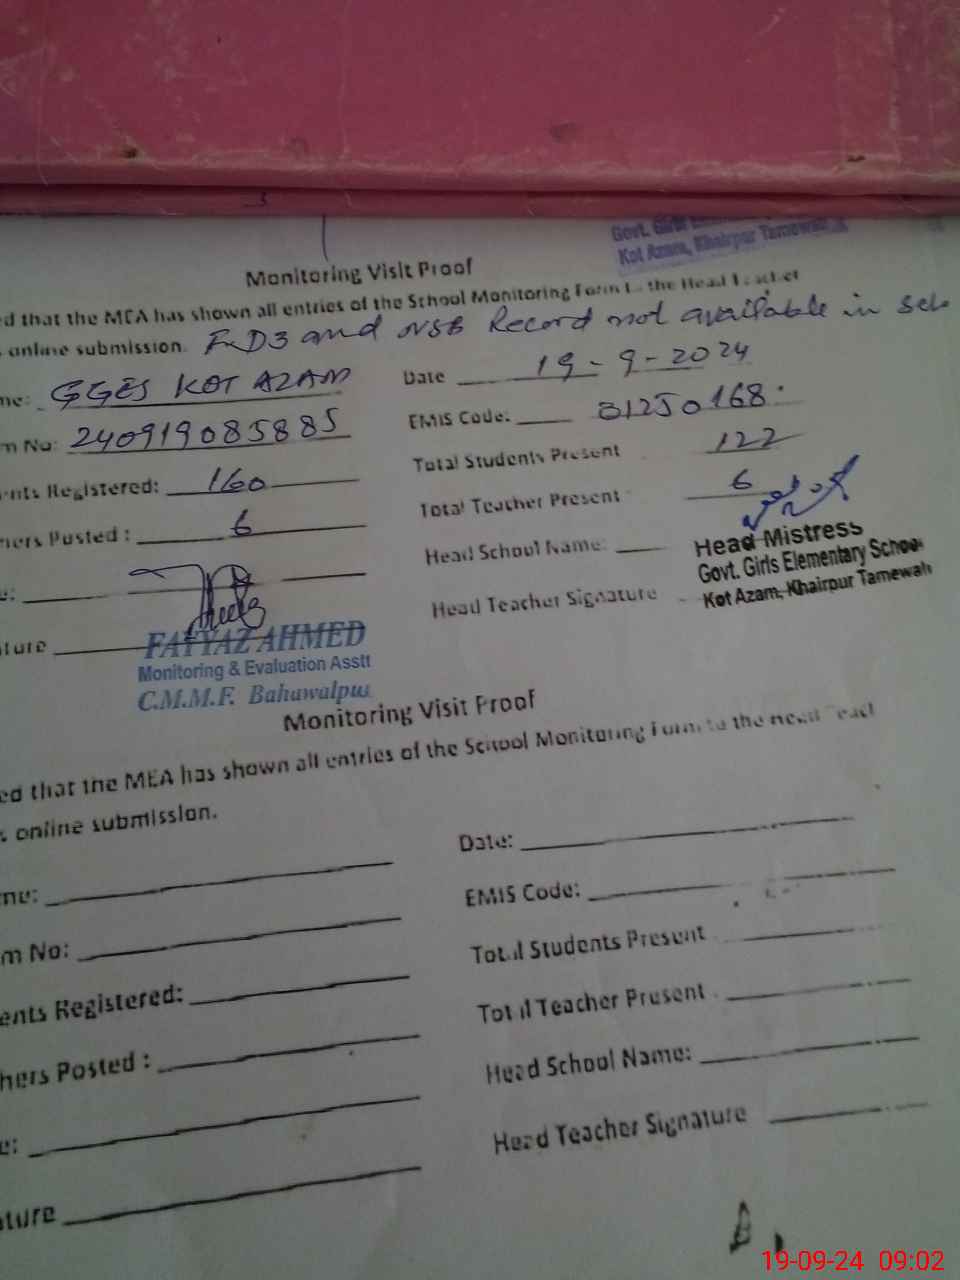 Govt. Girls
Kot Azam, Khairpur Tamewali
Monitoring Visit Proof
ed that the MEA has shown all entries of the School Monitoring Form to the Head Teacher
online submission. and NSB Record not available in
me: GGES KOT AZAM Date 19-9-2024
m No: 240919085885 EMIS Code: 31250168
ents Registered: 160 Total Students Present 122
hers Posted : 6 Total Teacher Present 6
e: Head School Name: Head Mistress
Govt. Girls Elementary School
ture Head Teacher Signature Kot Azam, Khairpur Tamewali
FAYYAZ AHMED
Monitoring & Evaluation Asstt
C.M.M.F. Bahawalpur
Monitoring Visit Proof
ed that the MEA has shown all entries of the School Monitoring Form to the Head Teach
s online submission.
me: Date:
m No: EMIS Code:
ents Registered: Total Students Present
hers Posted : Total Teacher Present
e: Head School Name:
ture Head Teacher Signature
19-09-24 09:02